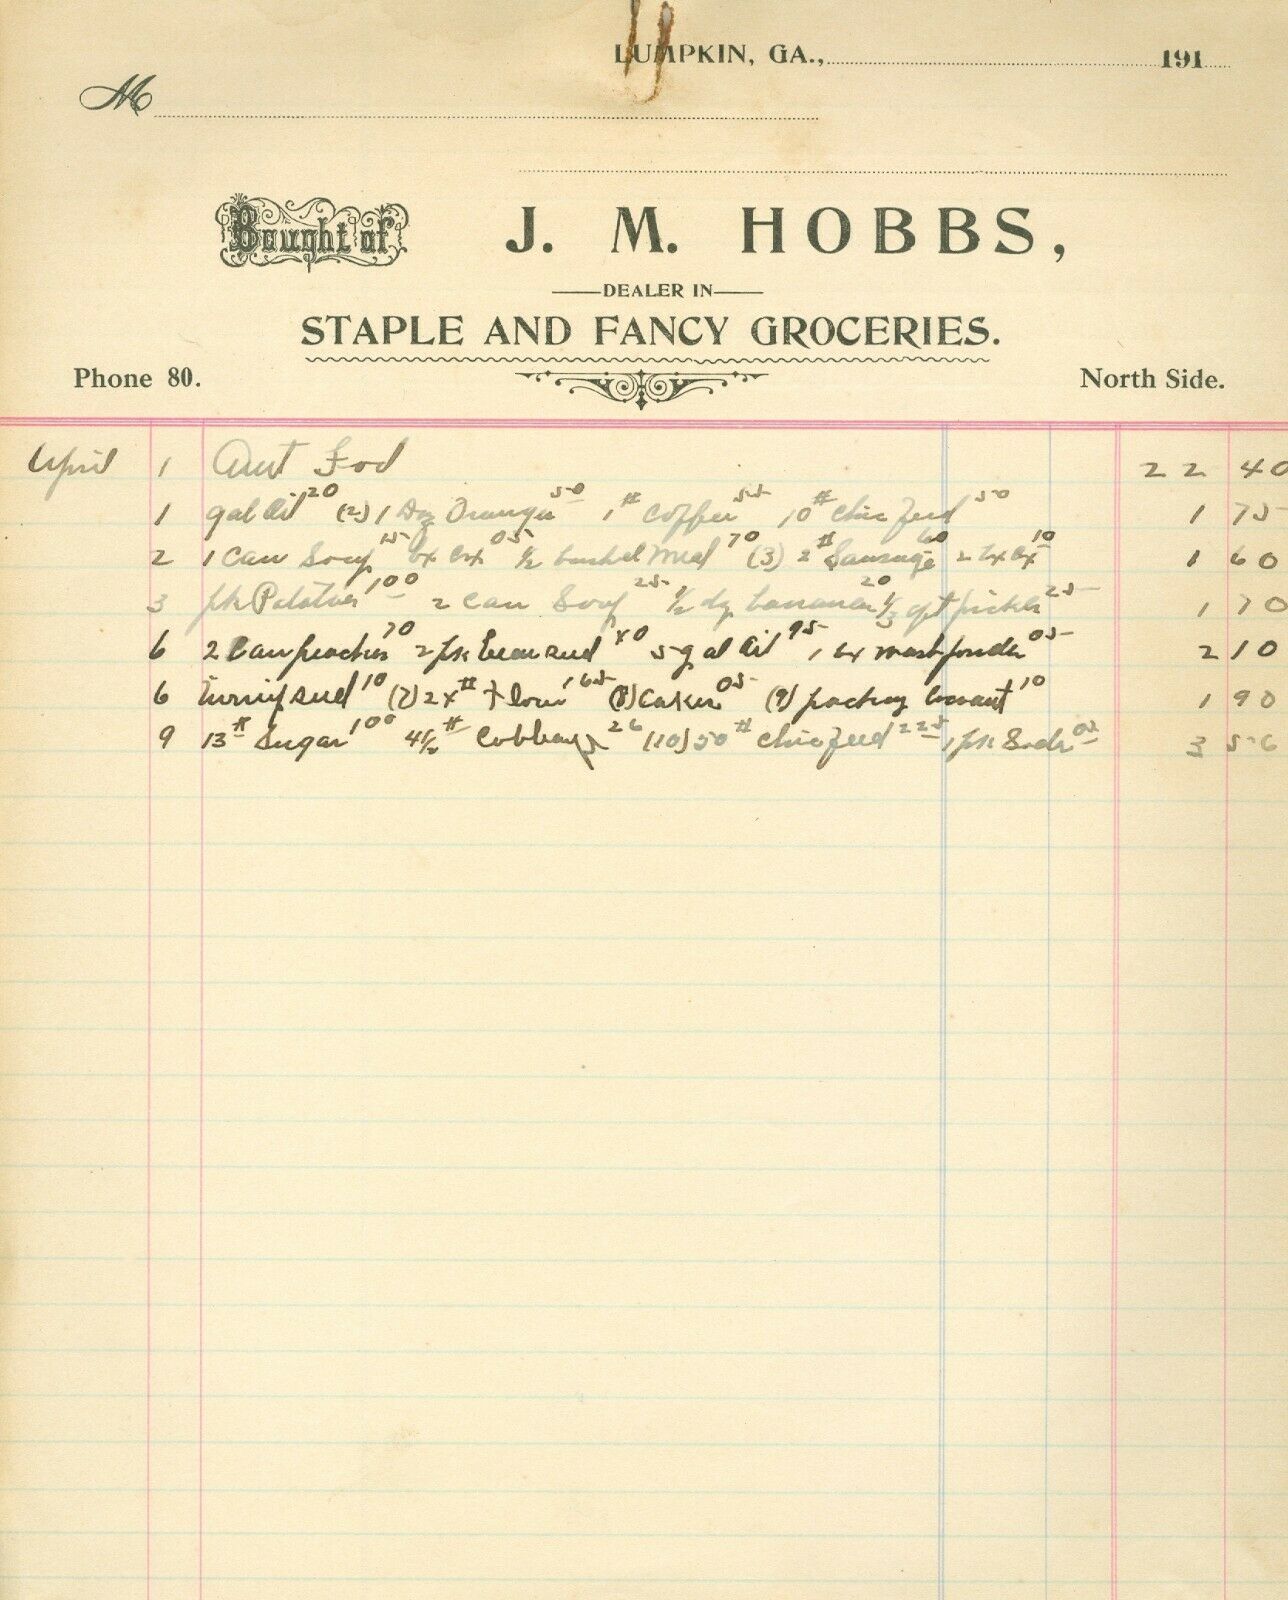 LUMPKIN, GA., 191
M
Bought of J. M. HOBBS,
DEALER IN
STAPLE AND FANCY GROCERIES.
Phone 80. North Side.
April 1 Amt Fod 22 40
1 gal Oil 20 (2) 1 Doz Oranges 50 1# Coffee 55 10# Chic feed 50 1 75
2 1 Can Soup 15 bx 05 1/2 bushel Meal 70 (3) 2# Sausage 60 2 10 1 60
3 pk Potatoes 100 2 Can Soup 25 1/2 dz bananas 20 1/3 gt pickle 25 1 70
6 2 Can peaches 70 2 pk bean seed 40 5 gal Oil 95 1 bx 05 2 10
6 turnip seed 10 (7) 24# flour 165 (8) Cakes 05 (9) 10 1 90
9 13# Sugar 100 4 1/2# Cabbage 26 (10) 50# Chic feed 225 1 pk Soda 05 3 56